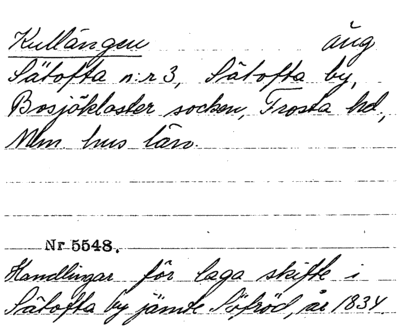 Kullängen äng
Sätofta n:r 3, Sätofta by,
Bosjökloster socken, Frosta hd,
Mlm hus län.
Nr 5548.
Handlingar för laga skifte i
Sätofta by jämte Söfröd, år 1834